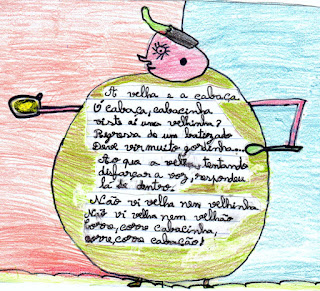 A velha e a cabaça
Ó cabaça, cabacinha
viste aí uma velhinha?
Regressa de um batizado
Deve vir muito gordinha...
Ao que a velha, tentando
disfarçar a voz, respondeu
lá de dentro.
Não vi velha nem velhinha
Não vi velha nem velhão
Corre, corre cabacinha,
corre, corre cabação!